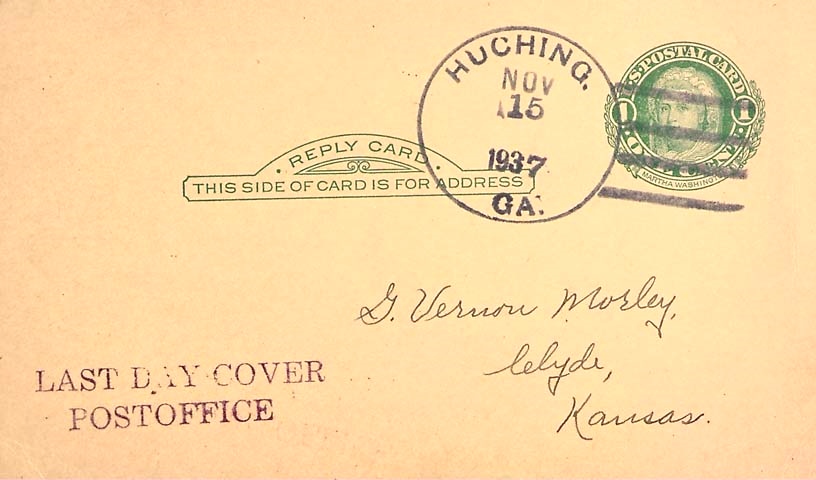 HUCHING.
NOV
15
1937
GA.
U.S. POSTAL CARD
1 1
ONE CENT
MARTHA WASHINGTON
· REPLY CARD ·
THIS SIDE OF CARD IS FOR ADDRESS
G. Vernon Morley,
Clyde,
Kansas.
LAST DAY COVER
POSTOFFICE